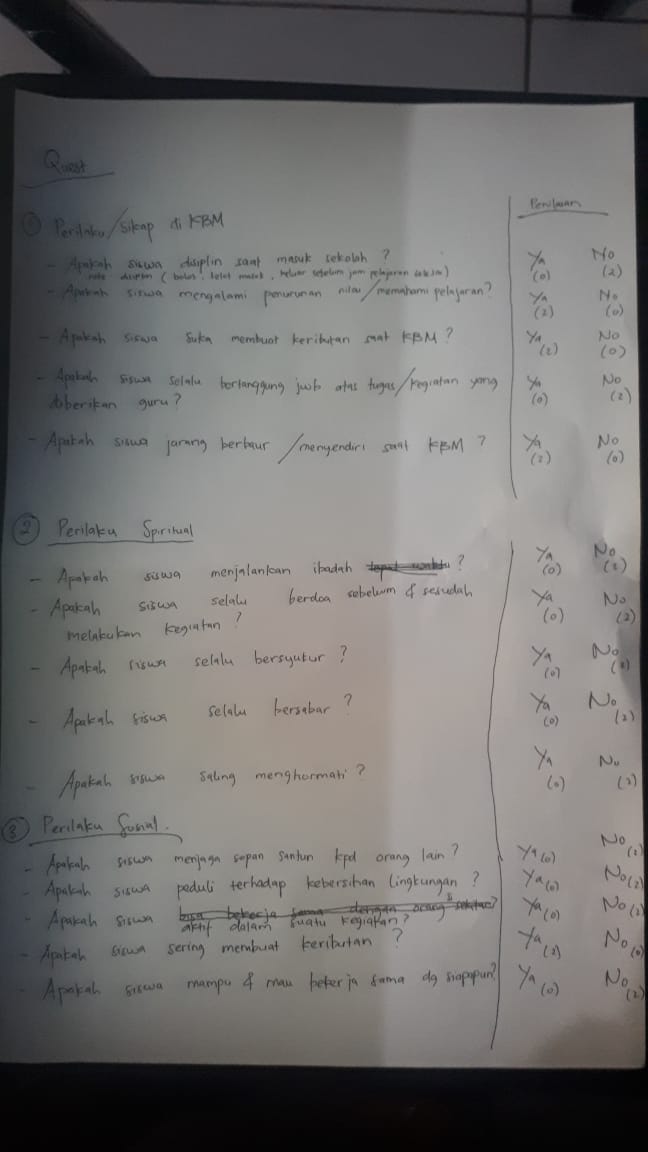 Quest
Penilaian
① Perilaku/Sikap di KBM
- Apakah siswa disiplin saat masuk sekolah ? Ya (0) No (2)
note disiplin ( bolos, telat masuk, keluar sebelum jam pelajaran selesai)
- Apakah siswa mengalami penurunan nilai /memahami pelajaran? Ya (2) No (0)
- Apakah siswa suka membuat keributan saat KBM ? Ya (2) No (0)
- Apakah siswa selalu bertanggung jwb atas tugas/kegiatan yang Ya (0) No (2)
diberikan guru ?
- Apakah siswa jarang berbaur /menyendiri saat KBM ? Ya (2) No (0)
② Perilaku Spiritual
- Apakah siswa menjalankan ibadah tepat waktu ? Ya (0) No (2)
- Apakah siswa selalu berdoa sebelum & sesudah Ya (0) No (2)
melakukan kegiatan ?
- Apakah siswa selalu bersyukur ? Ya (0) No (2)
- Apakah siswa selalu bersabar ? Ya (0) No (2)
- Apakah siswa saling menghormati ? Ya (0) No (2)
③ Perilaku Sosial.
- Apakah siswa menjaga sopan santun kpd orang lain ? Ya (0) No (2)
- Apakah siswa peduli terhadap kebersihan lingkungan ? Ya (0) No (2)
- Apakah siswa bisa bekerja sama dengan orang sekitar? Ya (0) No (2)
aktif dalam suatu kegiatan ?
- Apakah siswa sering membuat keributan ? Ya (2) No (0)
- Apakah siswa mampu & mau bekerja sama dg siapapun? Ya (0) No (2)